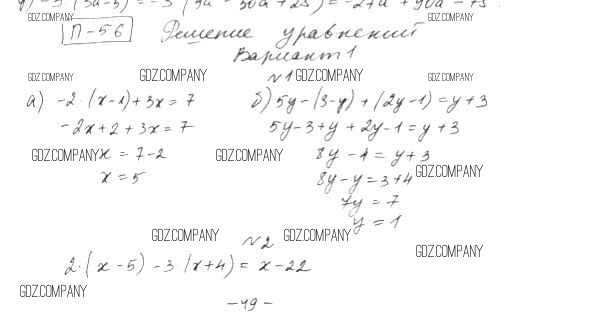 GDZ.COMPANY GDZ.COMPANY
П-56 Решение уравнений
Вариант 1
GDZ.COMPANY GDZ.COMPANY №1 GDZ.COMPANY GDZ.COMPANY
а) -2·(x-1)+3x=7
-2x+2+3x=7
GDZ.COMPANY x=7-2
x=5
б) 5y-(3-y)+(2y-1)=y+3
5y-3+y+2y-1=y+3
GDZ.COMPANY 8y-4=y+3
8y-y=3+4 GDZ.COMPANY
7y=7
y=1
GDZ.COMPANY №2 GDZ.COMPANY
GDZ.COMPANY
2·(x-5)-3(x+4)=x-22
GDZ.COMPANY
-49-